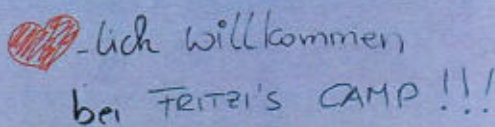 ❤-lich willkommen
bei FRITZI'S CAMP !!!